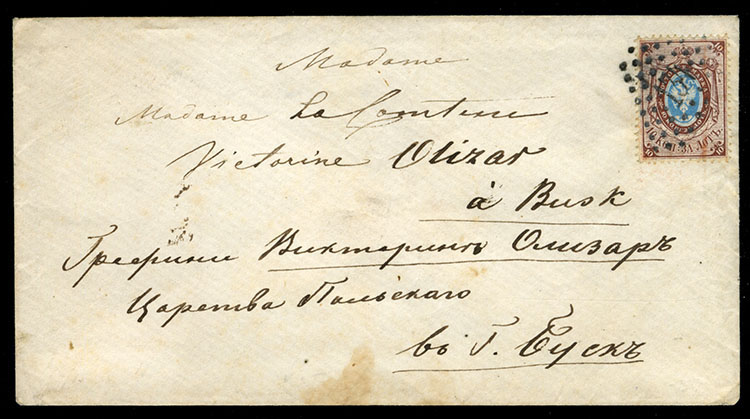 Madame
Madame La Comtesse
Victorine Olizar
à Busk
Графини Викторинѣ Олизаръ
Царства Польскаго
въ Г. Бускъ
10 КОП. ЗА ЛОТЪ